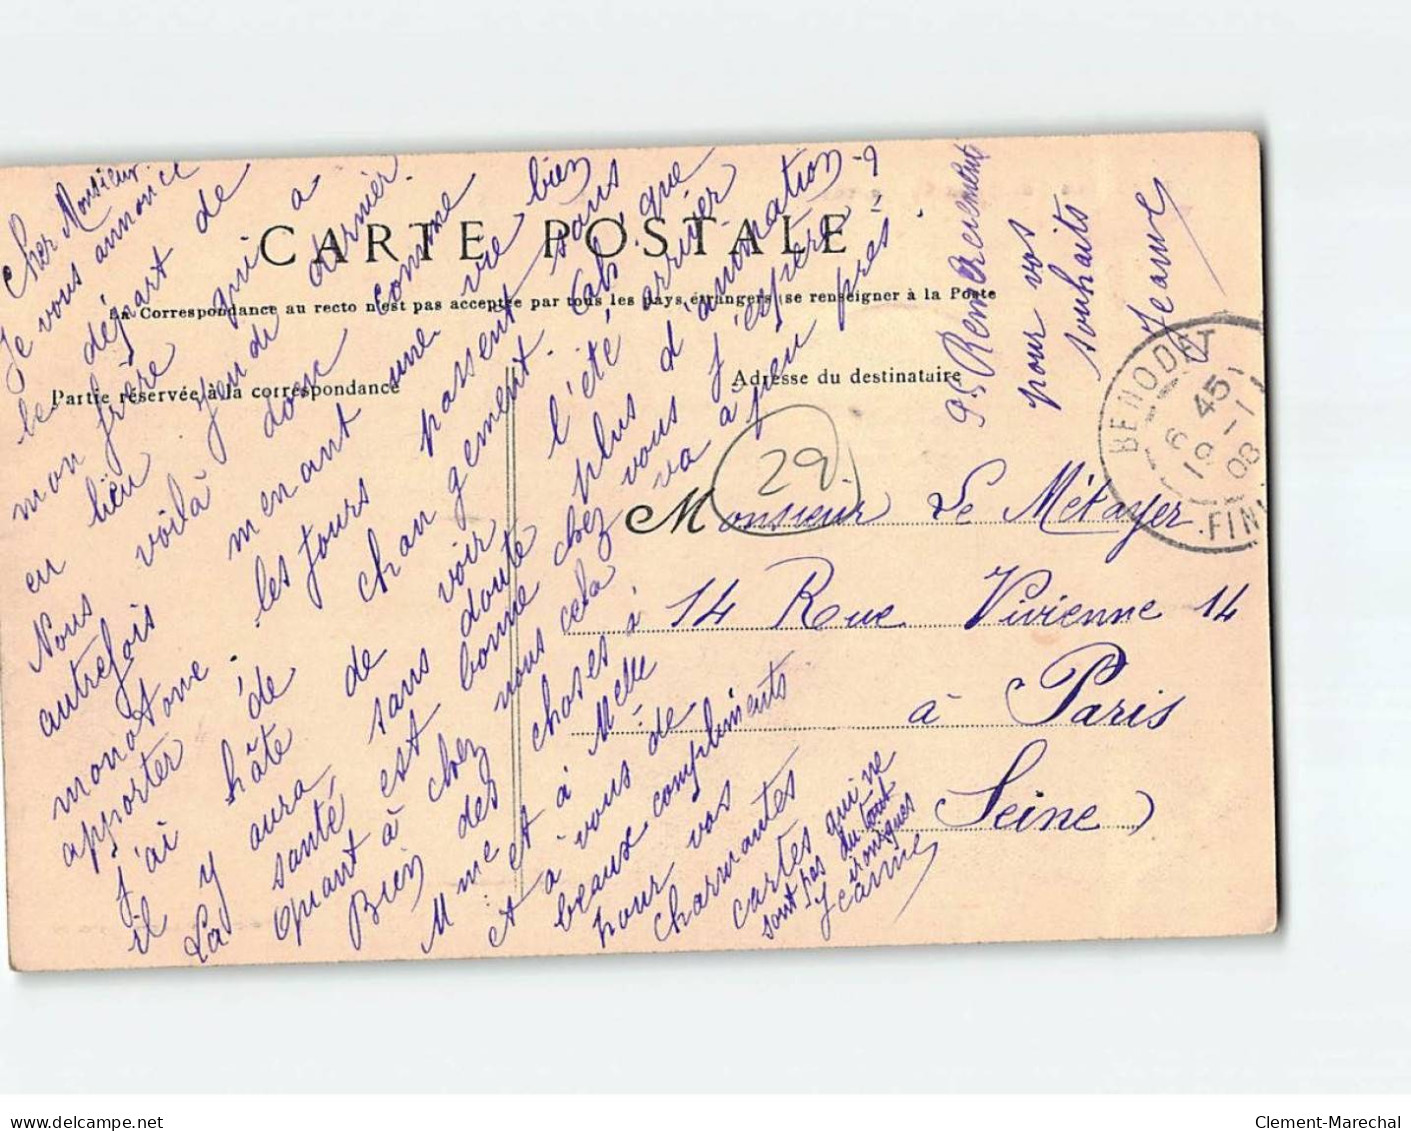 Cher Monsieur
Je vous annonce
le départ de
mon frère qui a
eu lieu Jeudi dernier.
Nous voilà donc comme
autrefois menant une vie bien
monotone. les jours passent sans
apporter de changement. Cah! que
j'ai hâte de voir l'été arriver
il y aura sans doute plus d'animation -9
La santé est bonne chez vous j'espère?
quant à chez nous cela va à peu près
Bien des choses à
Mme et à Melle
et à vous de
beaux compliments
pour vos
charmantes
cartes qui ne
sont pas du tout
ironiques
Jeanne
P.S Remerciements
pour vos
souhaits
Jeanne
CARTE POSTALE
La Correspondance au recto n'est pas acceptée par tous les pays étrangers (se renseigner à la Poste
Partie réservée à la correspondance
Adresse du destinataire
29
Monsieur Le Métayer
14 Rue Vivienne 14
à Paris
Seine
BENODAT
6 45
19 - 1
08
FINI
delcampe.net
Clement-Marechal